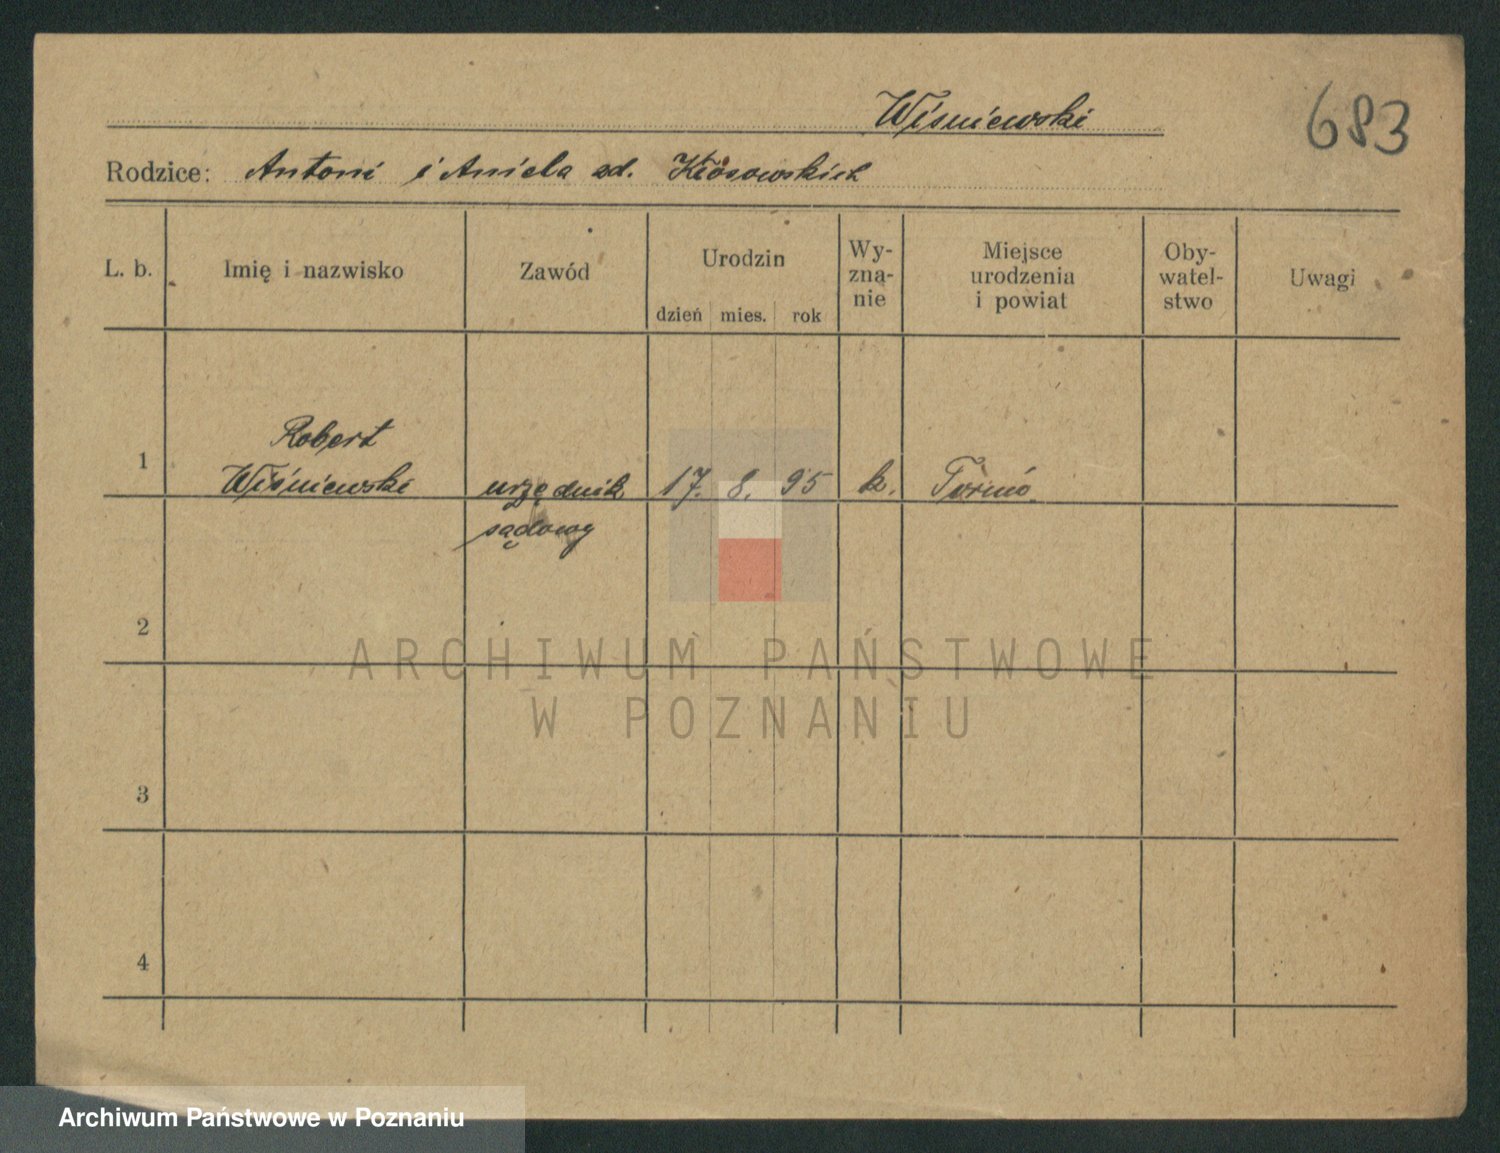 Wiśniewski
683
Rodzice: Antoni i Aniela zd.
L. b. Imię i nazwisko Zawód Urodzin Wy-zna-nie Miejsce urodzenia i powiat Oby-watel-stwo Uwagi
dzień mies. rok
1 Robert Wiśniewski urzędnik sądowy 17. 8. 95 k.
2
3
4
ARCHIWUM PAŃSTWOWE
W POZNANIU
Archiwum Państwowe w Poznaniu